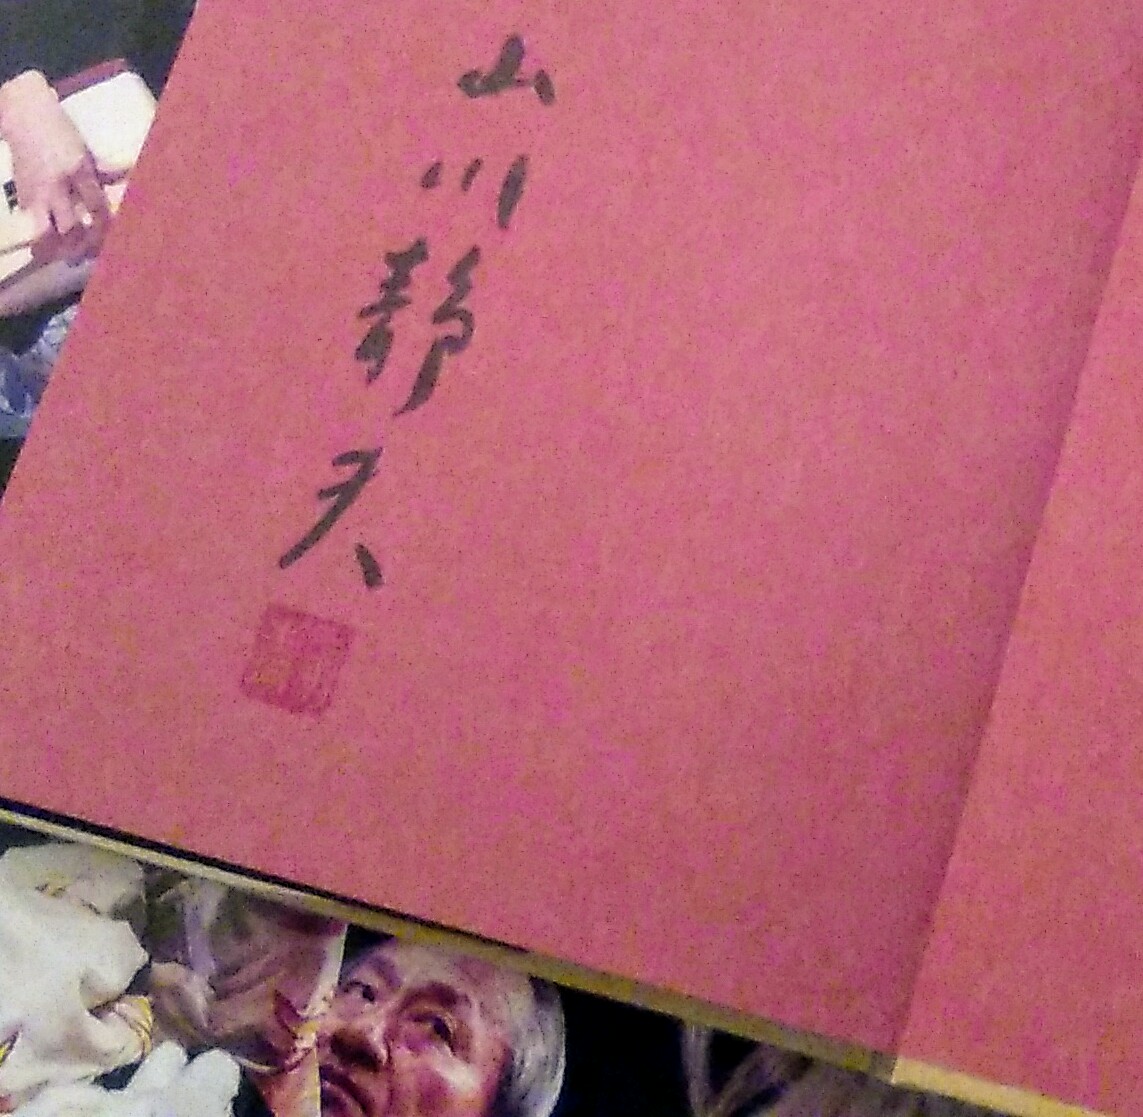 山川静夫